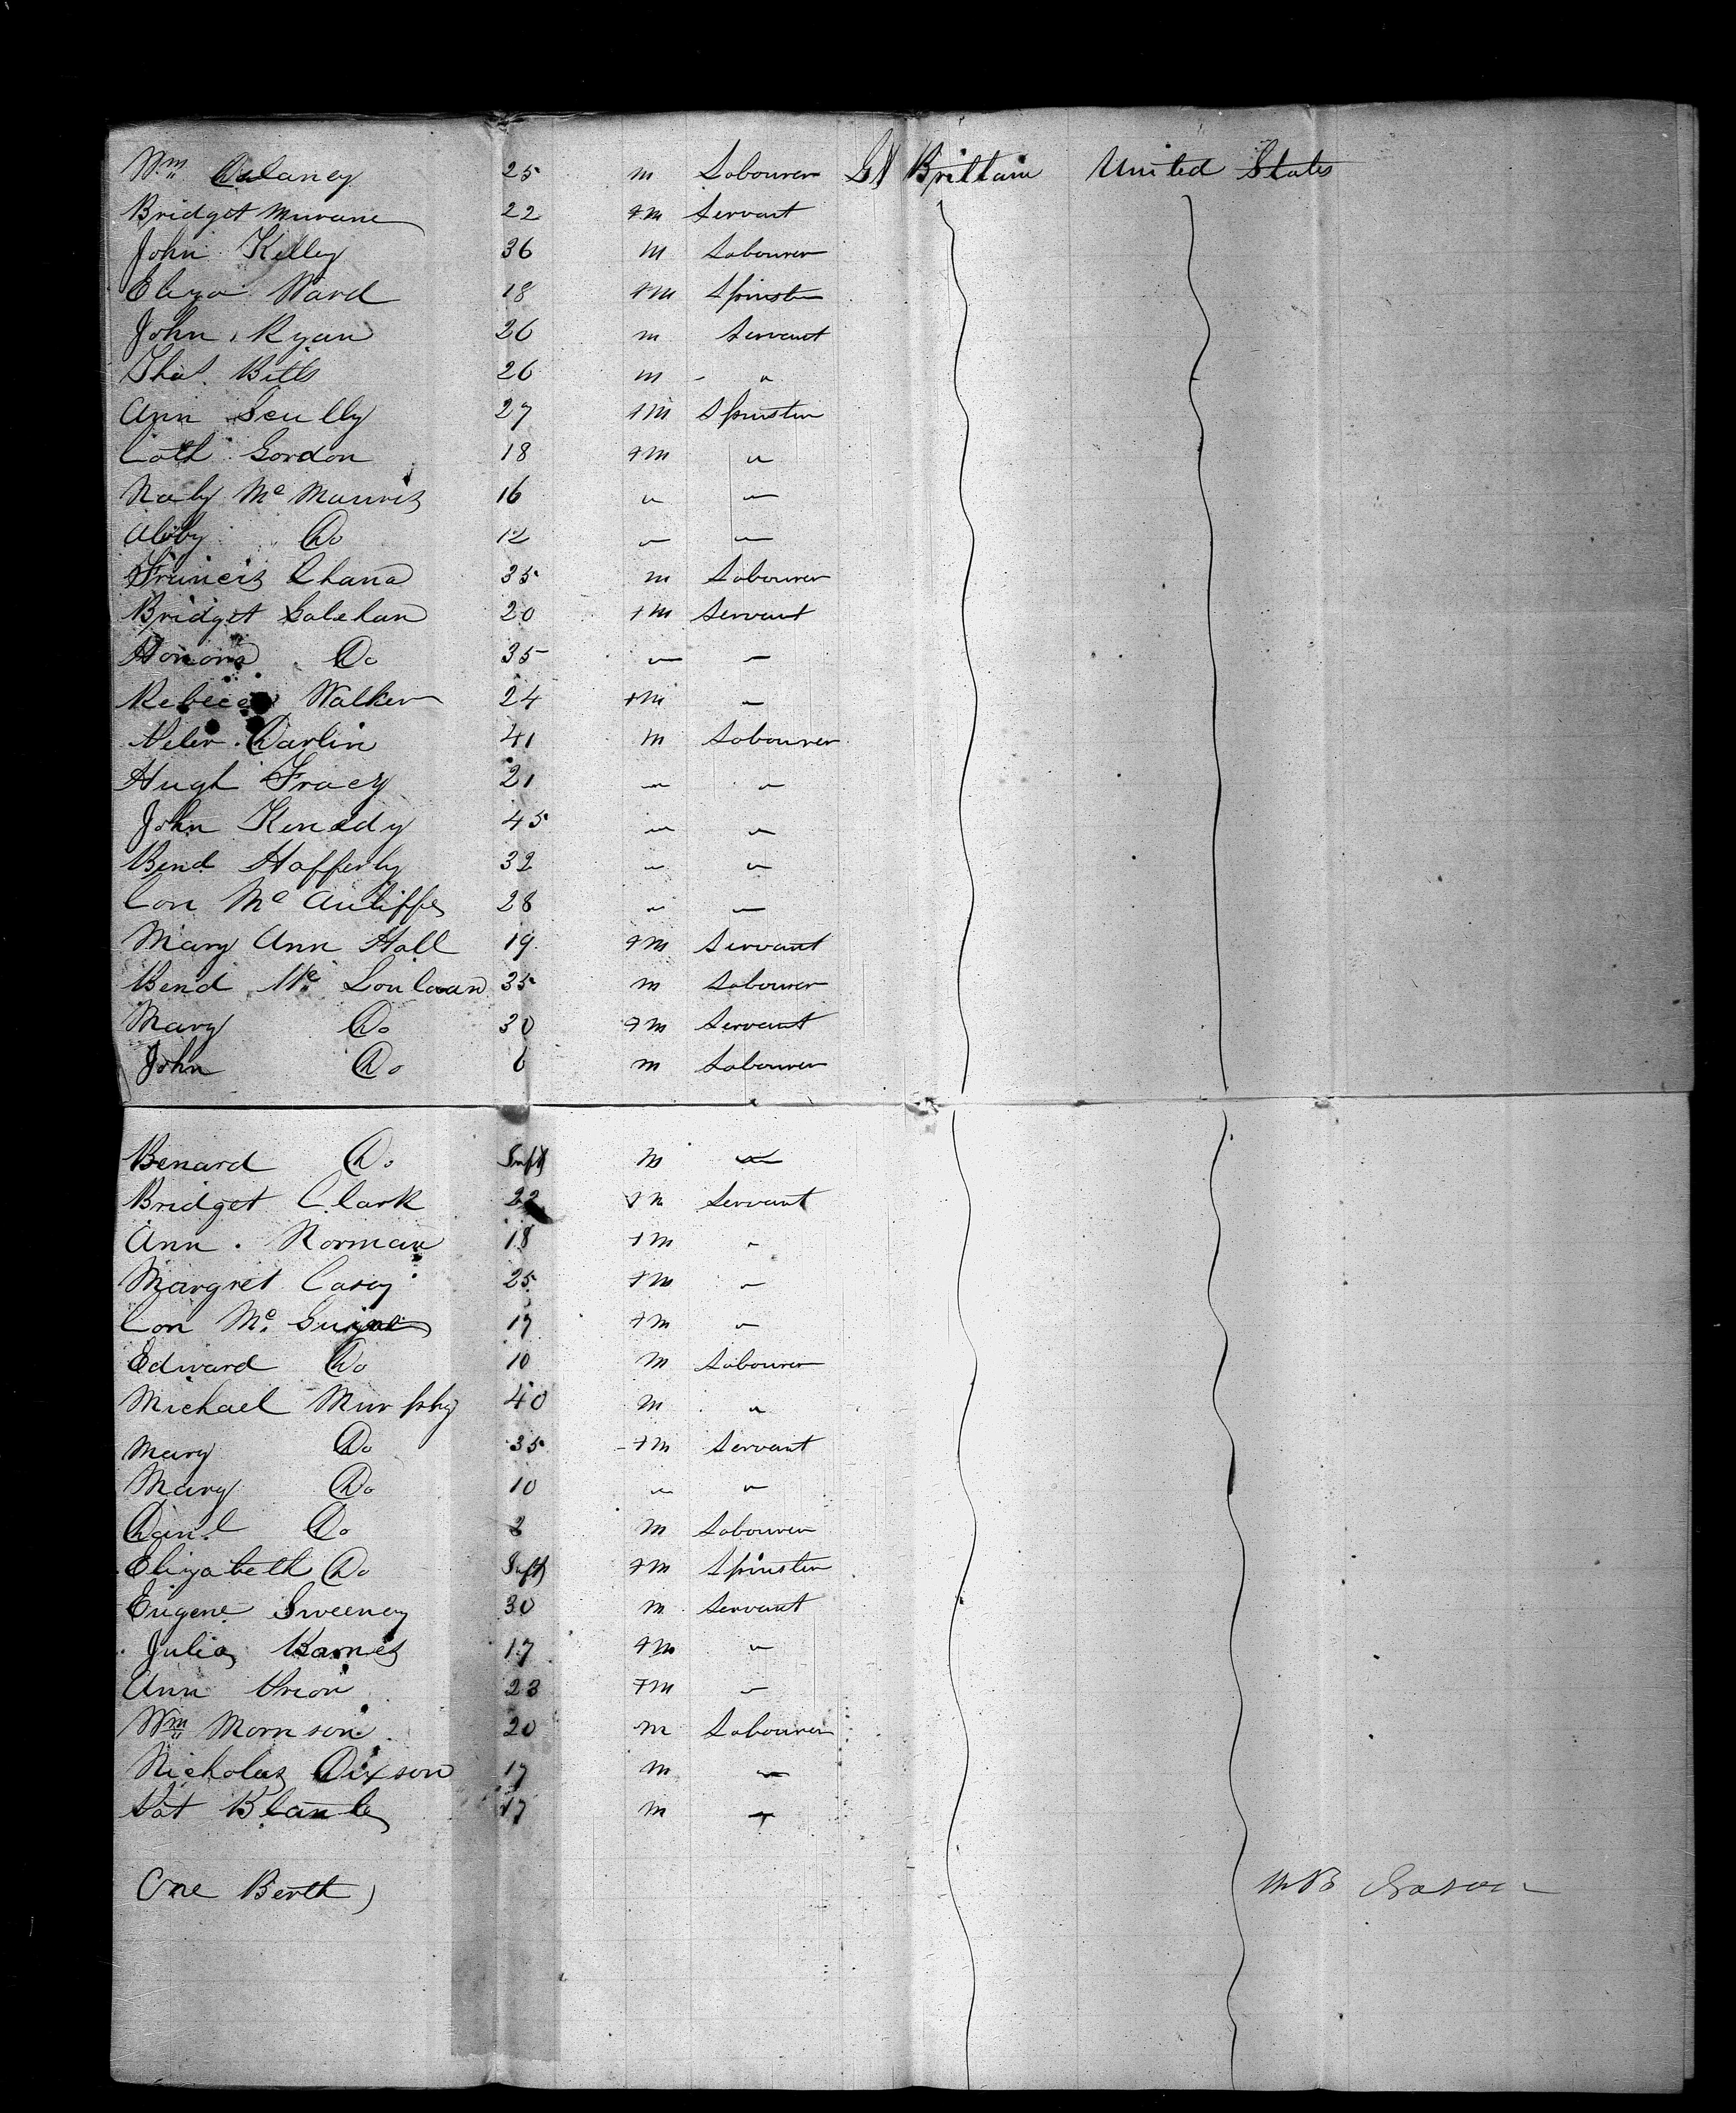 Wm Delaney 25 m Labourer Gt Brittain United States
Bridget Murane 22 fm Servant
John Kelley 36 m Labourer
Eliza Ward 18 fm Spinster
John Ryan 26 m Servant
Thos. Bitts 26 m - "
Ann Scully 27 fm Spinster
Cath Gordon 18 fm "
Naby Mc 16 " "
Abby Do 12 " "
Francis 35 m Labourer
Bridget 20 fm Servant
Honora Do 35 " "
Rebecca Walker 24 fm "
Peter Darlin 41 m Labourer
Hugh Tracy 21 " "
John Kenedy 45 " "
Bend Hafferty 32 " "
Con Mc Auliffe 28 " "
Mary Ann Hall 19 fm Servant
Bend Mc 35 m Labourer
Mary Do 30 fm Servant
John Do 6 m Labourer
Benard Do Inft m "
Bridget Clark 22 fm Servant
Ann Norman 18 fm "
Margret Casey 25 fm "
Con Mc. 17 fm "
Edward Do 10 m Labourer
Michael Murphy 40 m "
Mary Do 35 fm Servant
Mary Do 10 " "
Danl Do 2 m Labourer
Elizabeth Do Inft fm Spinster
Eugene Sweeney 30 m Servant
Julia Barnes 17 fm "
Ann Prior 23 fm "
Wm Morrison 20 m Labourer
Nicholas Dixson 17 m "
Pat 17 m "
One Berth